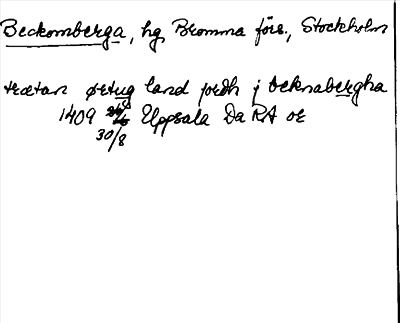 Beckomberga, hg, Bromma förs., Stockholm
trætan ørtug land jordh j beknabergha
1409 Uppsala Da RA or
30/8